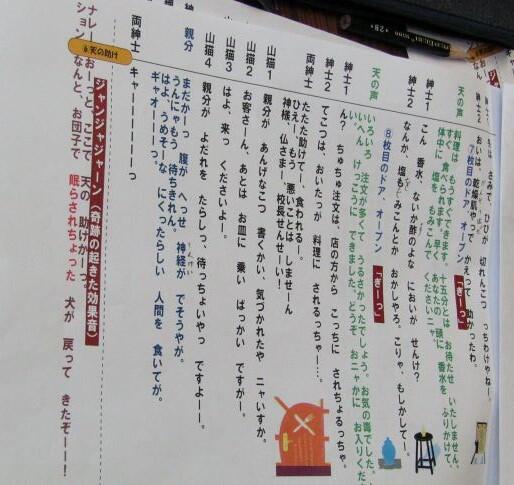 紳士2 おいは、乾燥肌やっで かえって 助かったわ。
⑦枚目のドア、オープン 「ぎーっ」
天の声 料理は もうすぐできます。十五分とは お待たせ いたしません。
すぐ 食べられます。早く あなたの 頭に 香水を ふりかけて
体中に 塩を もみこんで くださいニャ
紳士1 こん 香水 ないか酢のよな においが せんけ?
紳士2 なんか 塩もみこんとか おかしやろ。こりゃ、もしかしてー。
⑧枚目のドア、オープン 「ぎーっ」
天の声 いろいろ 注文が多くて うるさかったでしょう。お気の毒でした。
いへん けっこうに できました。どうぞ おニャかに お入りくだ
紳士1 ん? ちゅちゅ注文は 店の方から こっちに されちょるっちゃ。
紳士2 てこつは、おいたっが 料理に されるっちゃー…。
両紳士 たたた助けてー、食われるー。
ひえー、もう 悪いことは しませーん
神様、仏さま、校長せんせーい!
山猫1 親分が あんげなこつ 書くかい、気づかれたや ニャいすか。
山猫2 お客さーん、あとは お皿に 乗い ばっかい ですがー。
山猫3 はよ、来っ くださいよー。
山猫4 親分が よだれを たらしっ、待っちょいやっ ですよーー。
親分 まだかーっ 腹が へっせ 神経が でそうやが。
うんにゃもう 待ちきれん。
はよ、うめそーな にくったらしい 人間を 食いてが。
ギャオーーーっ。
両紳士 キャーーーーーーーっ
⑨天の助け
ジャンジャジャーン (奇跡の起きた効果音)
ナレーション おーっと、ここで 天の 助けかーっ
なんと、お団子で 眠らされちょった 犬が 戻って きたぞーー!!